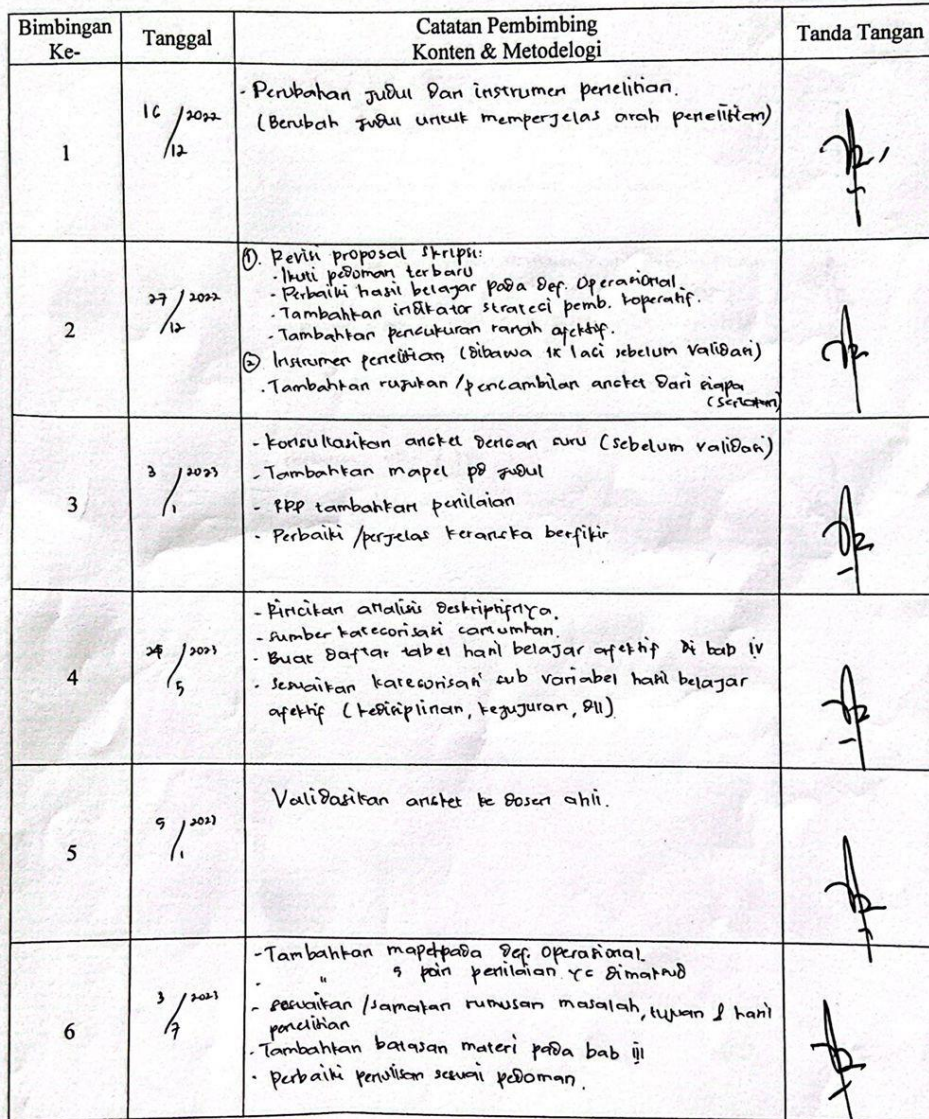 Bimbingan Ke-
Tanggal
Catatan Pembimbing
Konten & Metodelogi
Tanda Tangan
1
16/12 2022
- Perubahan judul dan instrumen penelitian.
(Berubah judul untuk memperjelas arah penelitian)
2
27/12 2022
①. Revisi proposal skripsi:
- Ikuti pedoman terbaru
- Perbaiki hasil belajar pada def. Operasional.
- Tambahkan indikator strategi pemb. koperatif.
- Tambahkan pengukuran ranah afektif.
② Instrumen penelitian (dibawa 1x lagi sebelum validasi)
. Tambahkan rujukan/pengambilan angket dari siapa
3
3/1 2023
- Konsultasikan angket dengan guru (sebelum validasi)
- Tambahkan mapel pd judul
- RPP tambahkan penilaian
- Perbaiki/perjelas kerangka berfikir
4
/5 2023
- Rincikan analisis deskriptifnya.
- Sumber kategorisasi cantumkan.
- Buat daftar tabel hasil belajar afektif di bab iv
- Sesuaikan kategorisasi sub variabel hasil belajar
afektif (kedisiplinan, kejujuran, dll)
5
9/1 2023
Validasikan angket ke dosen ahli.
6
3/7 2023
- Tambahkan mapel pada def. operasional.
- " 5 poin penilaian yg dimaksud
- sesuaikan/samakan rumusan masalah, tujuan & hasil
penelitian
- Tambahkan batasan materi pada bab iii
- perbaiki penulisan sesuai pedoman.